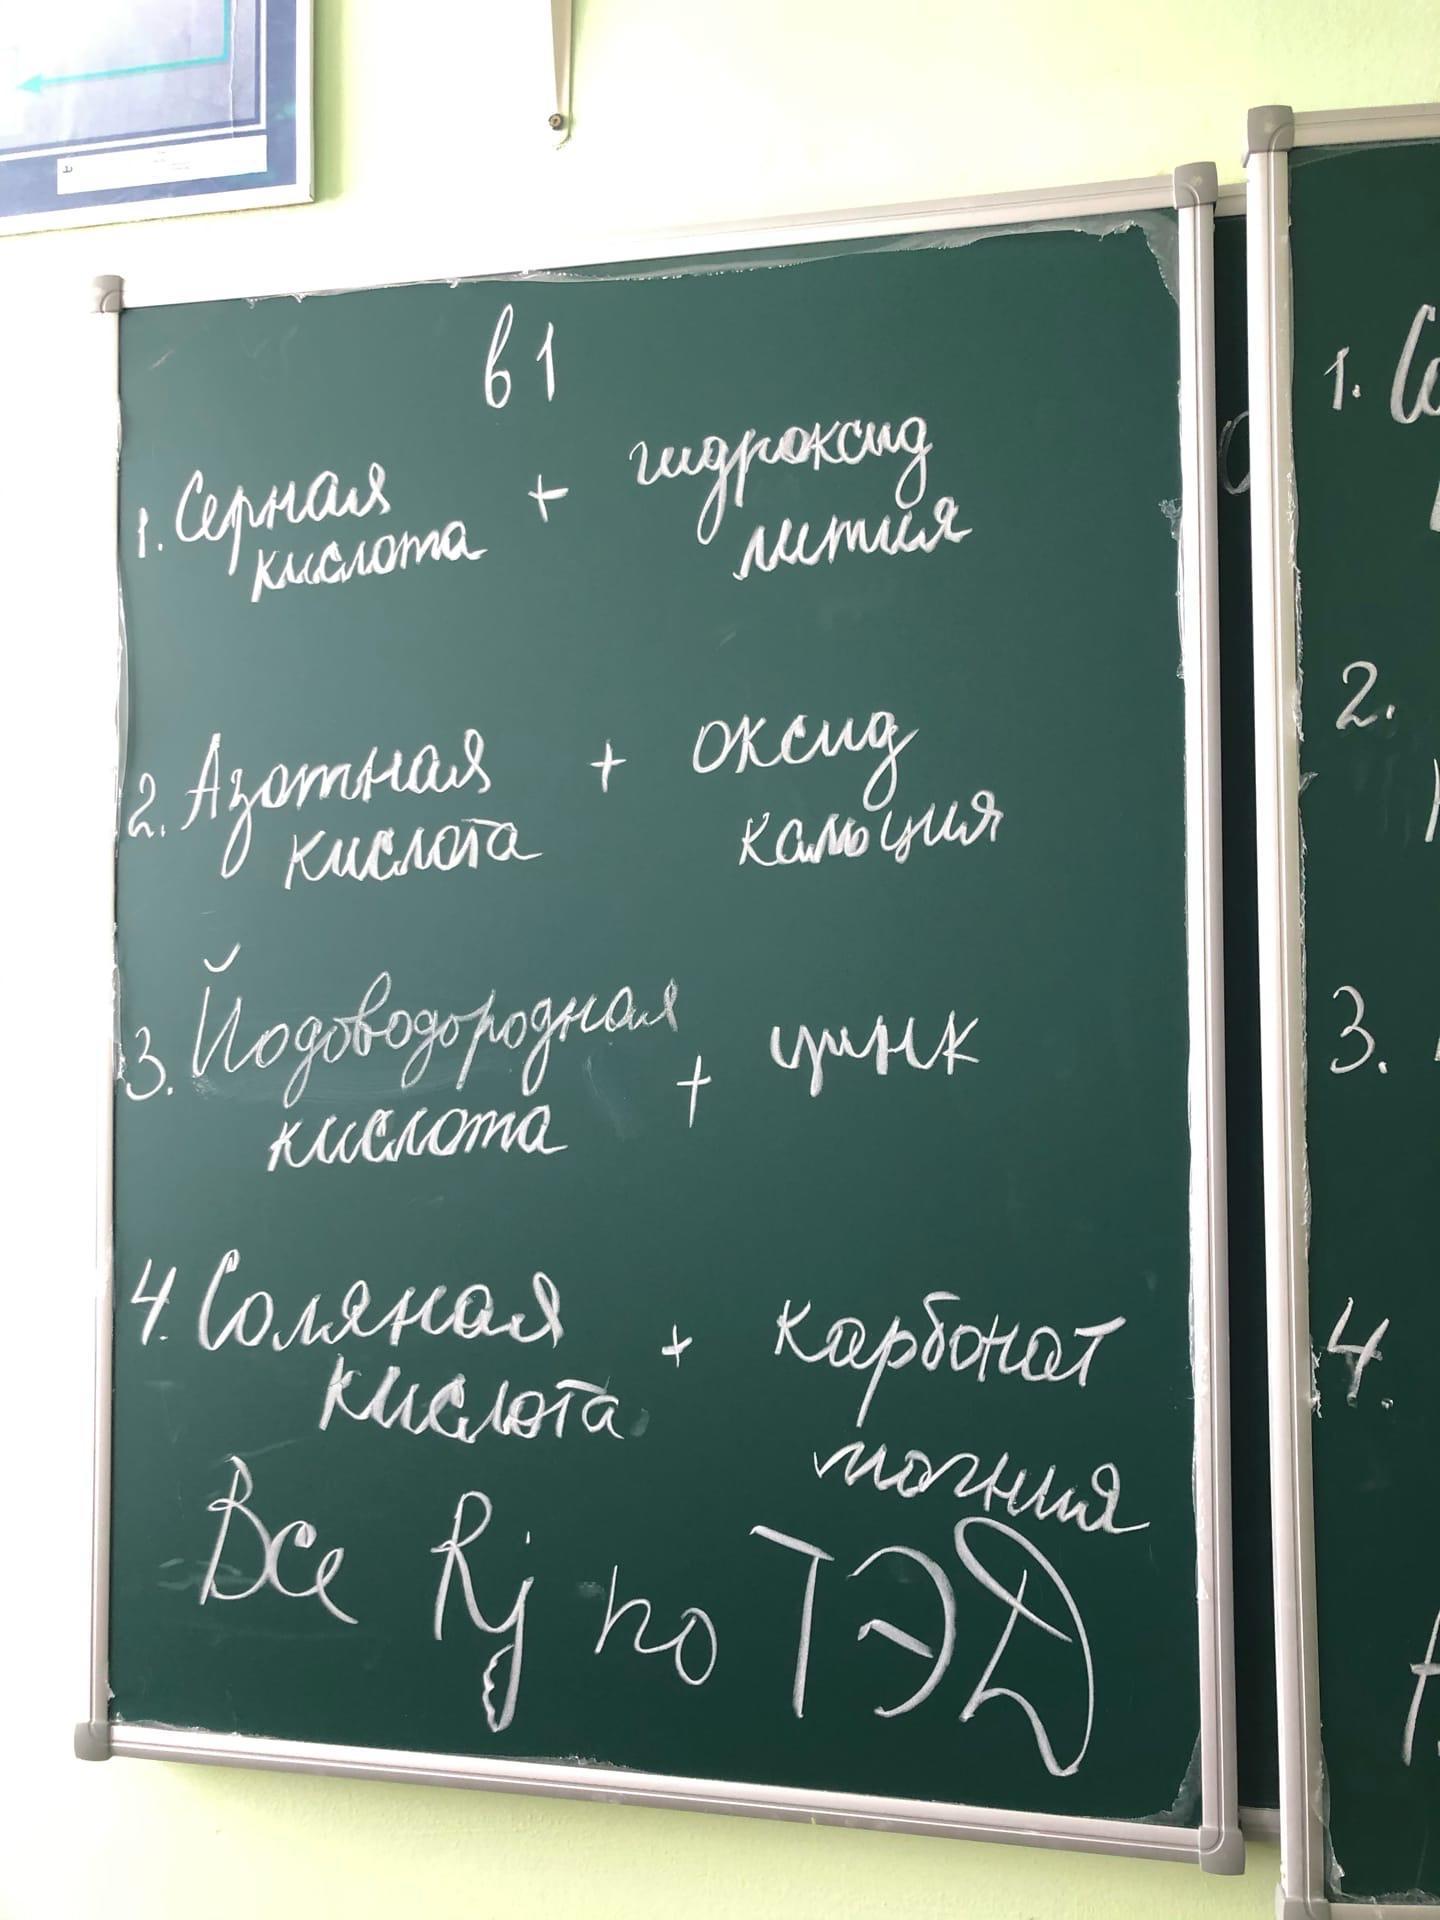 в 1
1. Серная + гидроксид
кислота лития
2. Азотная + оксид
кислота кальция
3. Йодоводородная + цинк
кислота
4. Соляная + карбонат
кислота магния
Все Rj по ТЭД
1. Со
2.
3.
4.